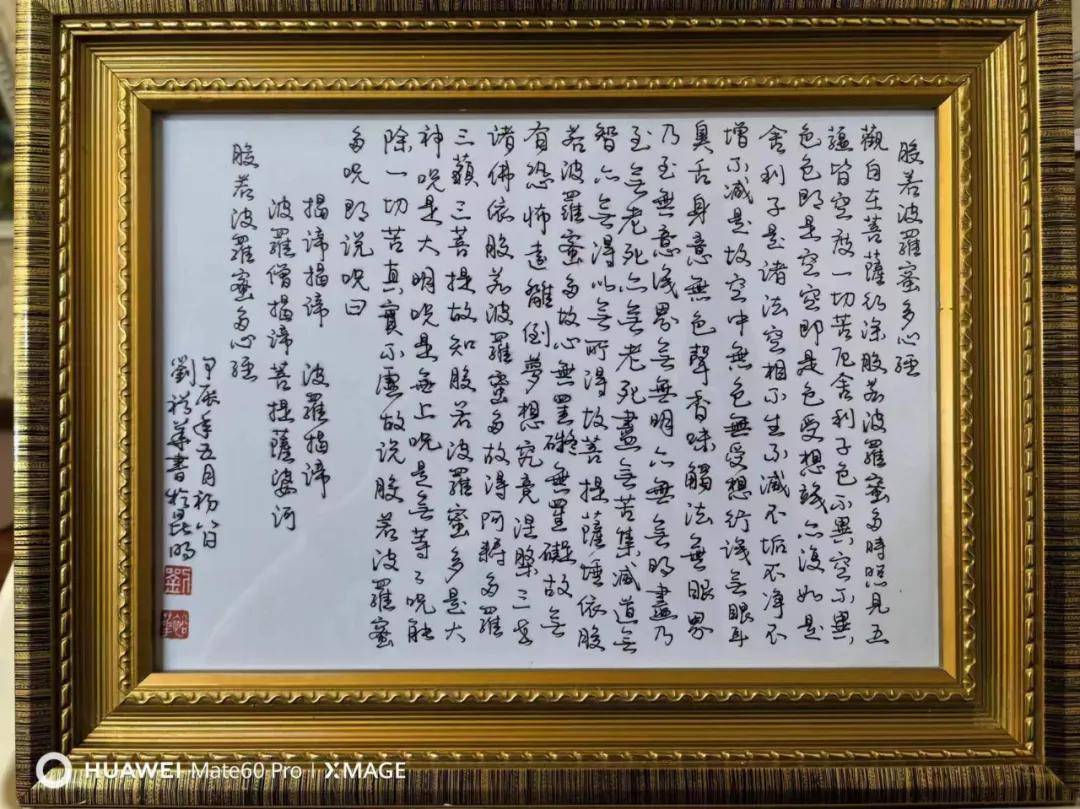 般若波羅蜜多心經
觀自在菩薩行深般若波羅蜜多時照見五
蘊皆空度一切苦厄舍利子色不異空不異
色色即是空空即是色受想識亦復如是
舍利子是諸法空相不生不滅不垢不净不
增不減是故空中無色無受想行識無眼耳
鼻舌身意無色聲香味觸法無眼界
乃至無意識界無無明亦無無明盡乃
至無老死亦無老死盡無苦集滅道無
智亦無得以無所得故菩提薩埵依般
若波羅蜜多故心無罣礙無罣礙故無
有恐怖遠離倒夢想究竟涅槃三世
諸佛依般若波羅蜜多故得阿耨多羅
三藐三菩提故知般若波羅蜜多是大
神咒是大明咒是無上咒是無等等咒能
除一切苦真實不虛故說般若波羅蜜
多咒即說咒曰
揭諦揭諦 波羅揭諦
波羅僧揭諦菩提薩婆訶
般若波羅蜜多心經
甲辰年五月初八日
劉裕華書於昆明
劉
裕華
HUAWEI Mate60 Pro | XMAGE